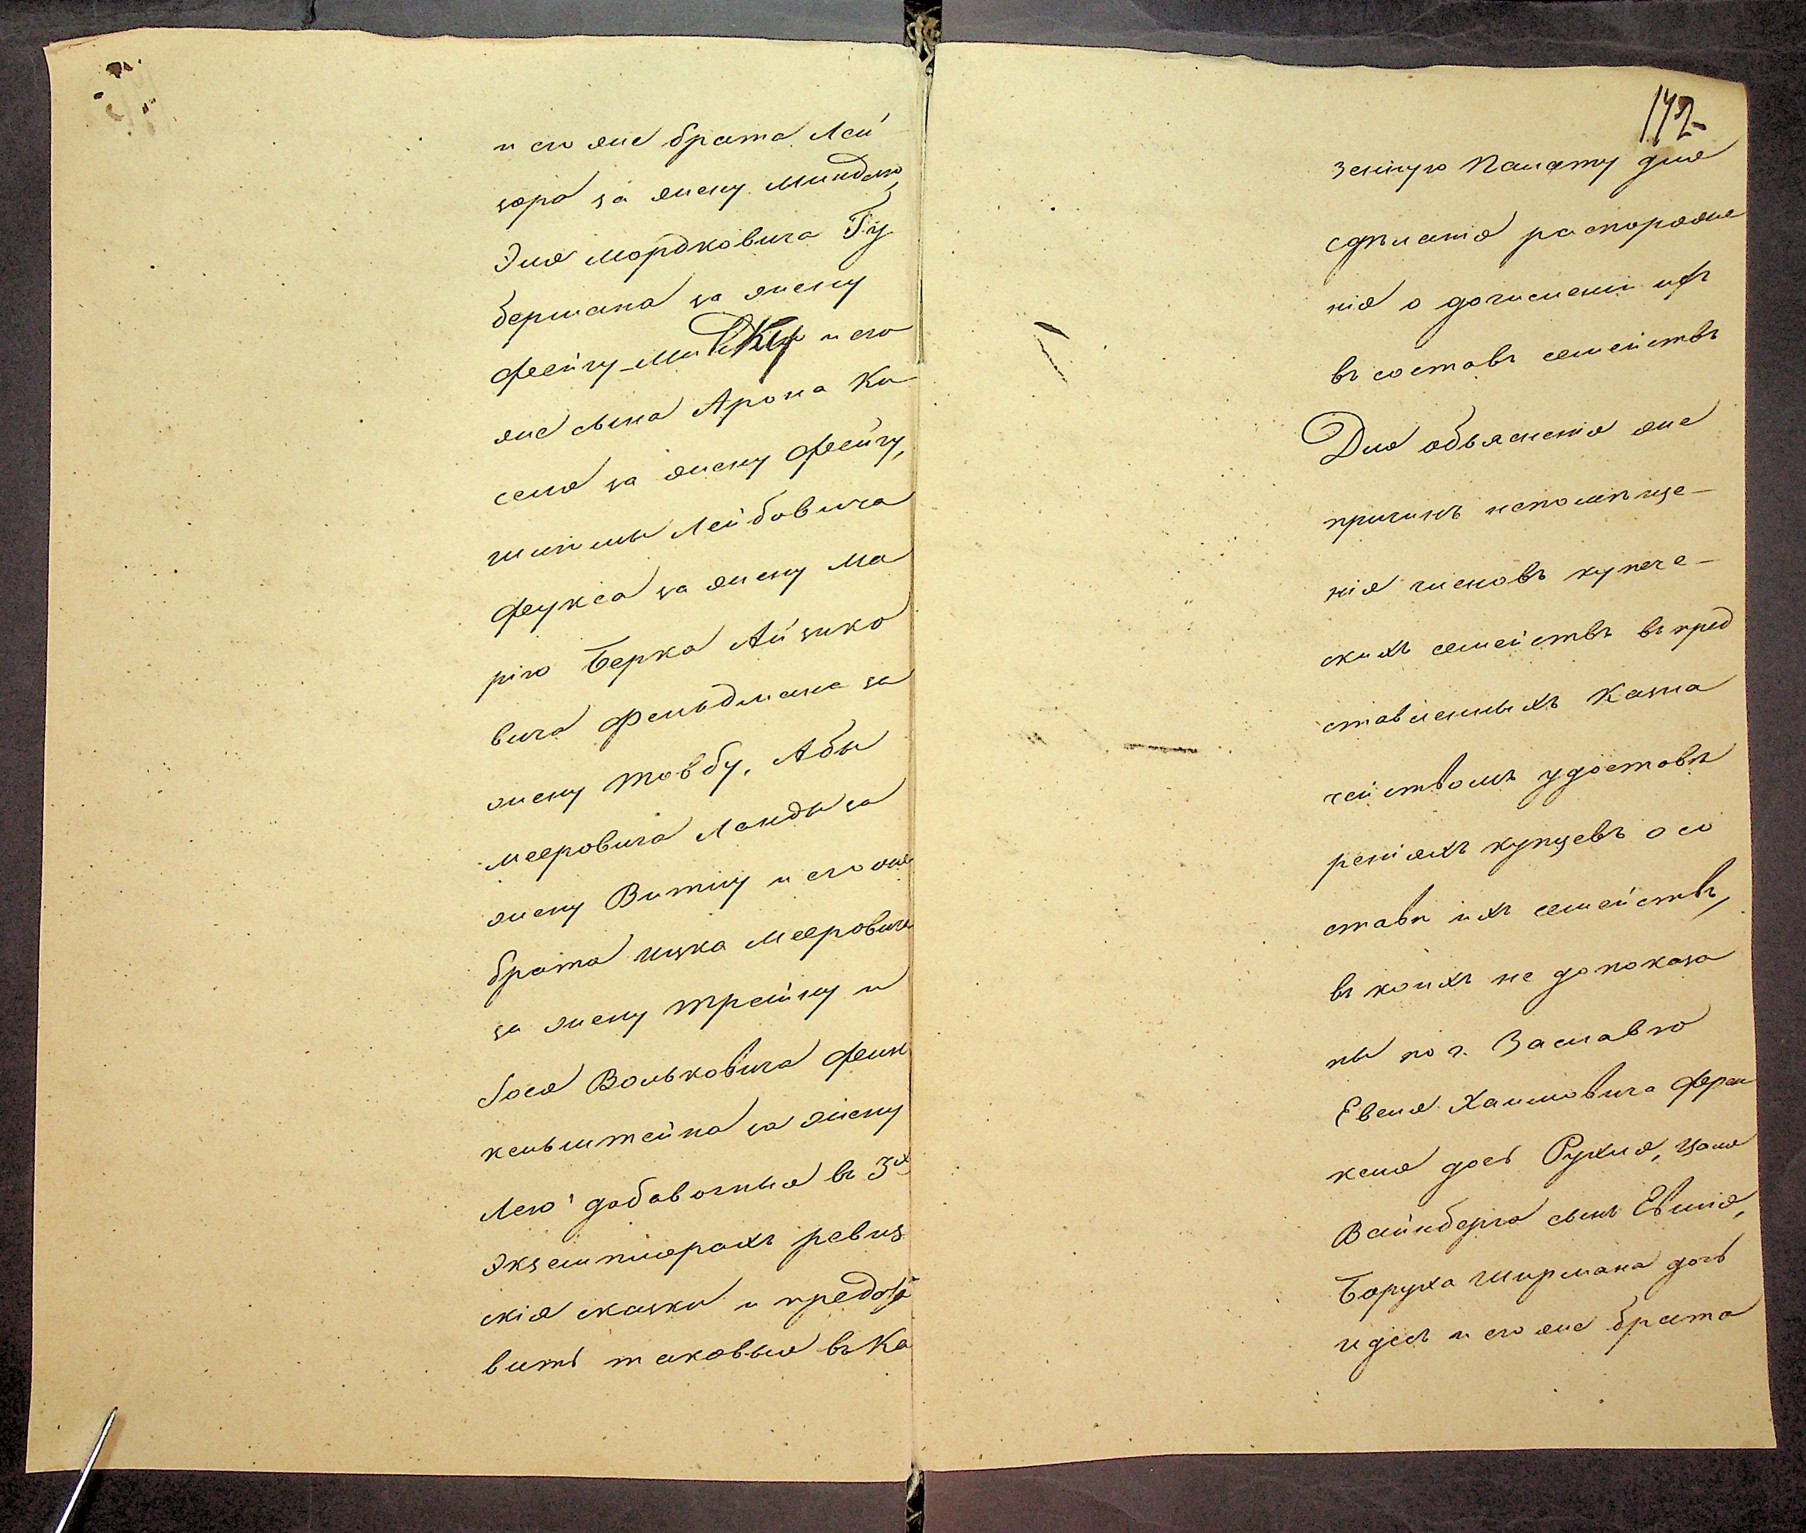 и его же брата Лей
зора за жену Миндлю,
Эля Мордковича Гу
бермана за жену
Фейгу-Минку и его
же сына Арона Ки
селя за жену Фейгу,
Шлiомы Лейбовича
Фукса за жену Ма
рiю Берка Айзико
вича Фельдмана за
жену Товбу, Абы
Мееровича Ланды за
жену Витлу и его же
брата Ицка Мееровича
за жену Трейну и
Iося Вольковича Фин
кельштейна за жену
Лею добавочныя въ 3х
экземплярахъ ревиз
скiя сказки и предста
вить таковыя въ Ка
172
зенную Палату для
сдѣланiя распоряже
нiя о дочислении ихъ
въ составъ семействъ
Для объясненiя же
причинъ непомѣще-
нiя членовъ купече-
скихъ семействъ въ пред
ставленныхъ Казна
чействомъ удостовѣ
ренiяхъ купцевъ о со
ставѣ ихъ семействъ,
въ коихъ не допоказа
ны по г. Заславлю
Евеля Хаимовича Френ
келя дочь Рухля,
Вайнберга сынъ
Боруха Ширмана дочь
Идесъ и его же брата